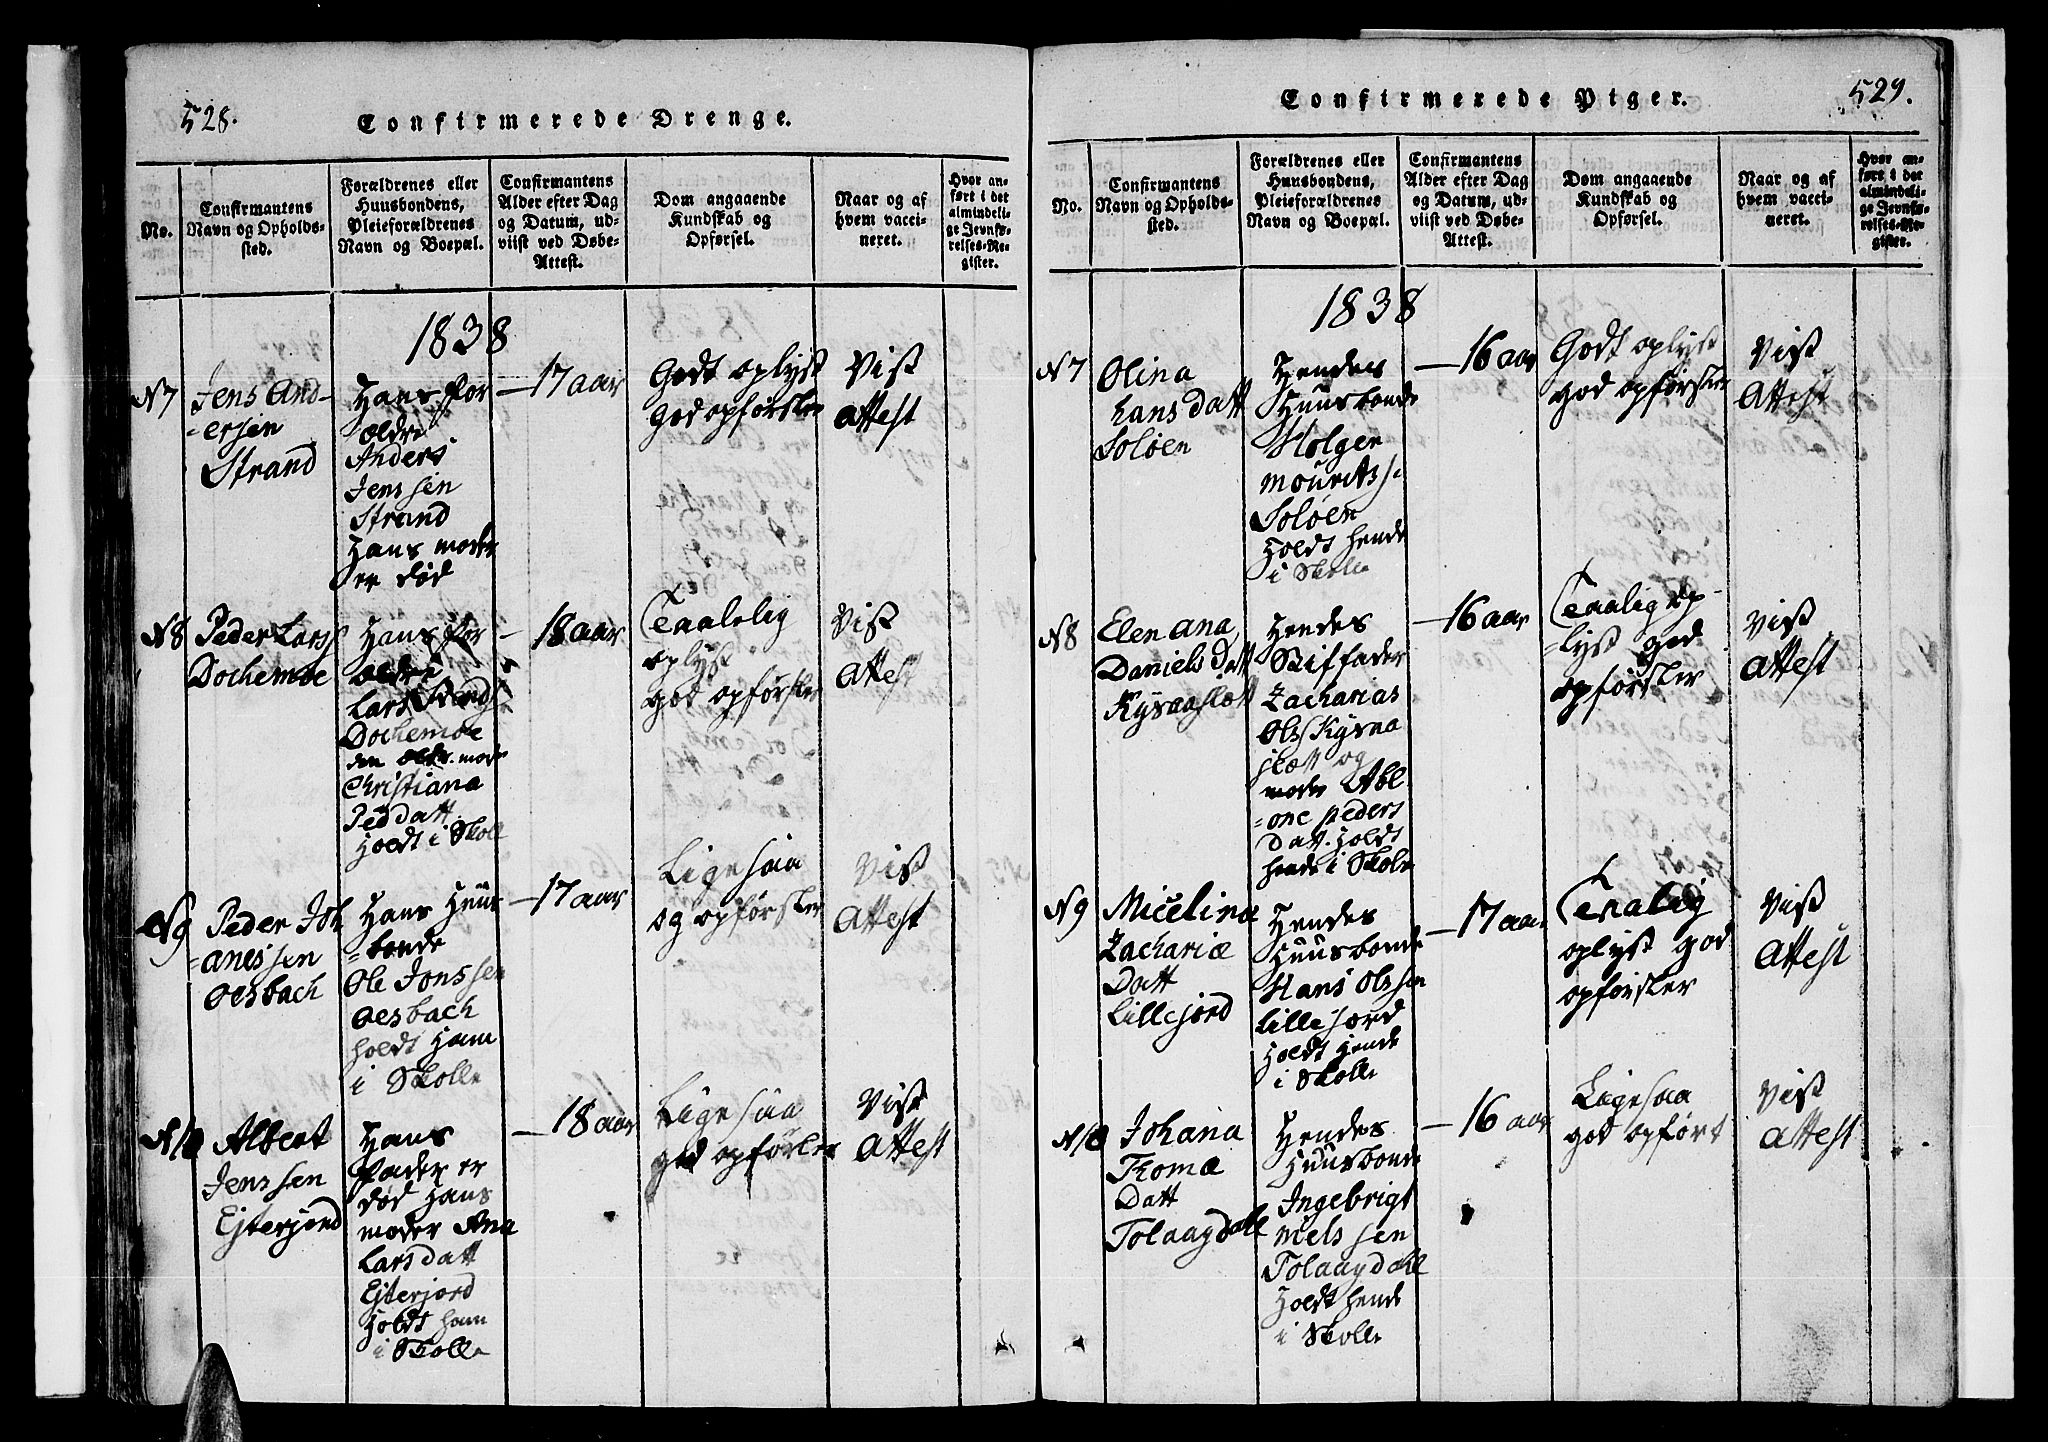 528.
Confirmerede Drenge.
No.
Confirmantens
Navn og Opholds-
sted.
Forældrenes eller
Huusbondens,
Pleieforældrenes
Navn og Boepæl.
Confirmantens
Alder efter Dag
og Datum, ud-
viist ved Døbe-
Attest.
Dom angaaende
Kundskab og
Opførsel.
Naar og af
hvem vacci-
neret.
Hvor an-
ført i det
almindeli-
ge Jevnfø-
relses-Re-
gister.
1838
N7
Jens And-
=ersen
Strand
Hans for
ældre
Anders
Jenssen
Strand
Hans moder
er død
17 aar
Godt oplyst
god opførsler
Vist
Attest
N8
Peder Larss
Dochemoe
Hans for
ældre
Lars
Dochemoe
den moder
Christiana
Peddatt
holdt i Skolle
18 aar
Taalelig
oplyst
god opførsler
Vist
Attest
N9
Peder Joh
=anessen
Oesbach
Hans Huus
=bonde
Ole Jonssen
Oesbach
holdt Ham
i Skolle
17 aar
Ligesaa
og opførsler
Vist
Attest
N10
Albert
Jenssen
Ejterjord
Hans
Fader er
død Hans
moder Ana
Larsdatt
Ejterjord
Holdt ham
i Skolle
18 aar
Ligesaa
god opførler
Vist
Attest
529.
Confirmerede Piger.
No.
Confirmantens
Navn og Opholds-
sted.
Forældrenes eller
Huusbondens,
Pleieforældrenes
Navn og Boepæl.
Confirmantens
Alder efter Dag
og Datum, ud-
viist ved Døbe-
Attest.
Dom angaaende
Kundskab og
Opførsel.
Naar og af
hvem vacci-
neret.
Hvor an-
ført i det
almindeli-
ge Jevnfø-
relses-Re-
gister.
1838
N7
Olina
hans datt
Soløen
Hendes
Huusbonde
Holger
mouritss
Soløen
Holdt hende
i Skolle
16 aar
Godt oplyst
god opførsler
Vist
Attest
N8
Elen Ana
Daniels datt
Kysnaslætt
Hendes
Stiffader
Zacharias
Ols Kysna
slætt og
moder Abel
=one peders
Datt. Holdt
hende i Skole
16 aar
Taalig op-
=lyst god
opførsler
Vist
Attest
N9
Micelina
Zachariæ
Datt
Lillejord
Hendes
Huusbonde
Hans Olssen
Lillejord
Holdt Hende
i Skolle
17 aar
Taalig
oplyst god
opførsler
Vist
Attest
N10
Johana
Thomæ
Datt
Tolaagdahl
Hendes
Huusbonde
Ingebrigt
nielssen
Tolaagdahl
Holdt hende
i Skolle
16 aar
Ligesaa
god opført
Vist
Attest